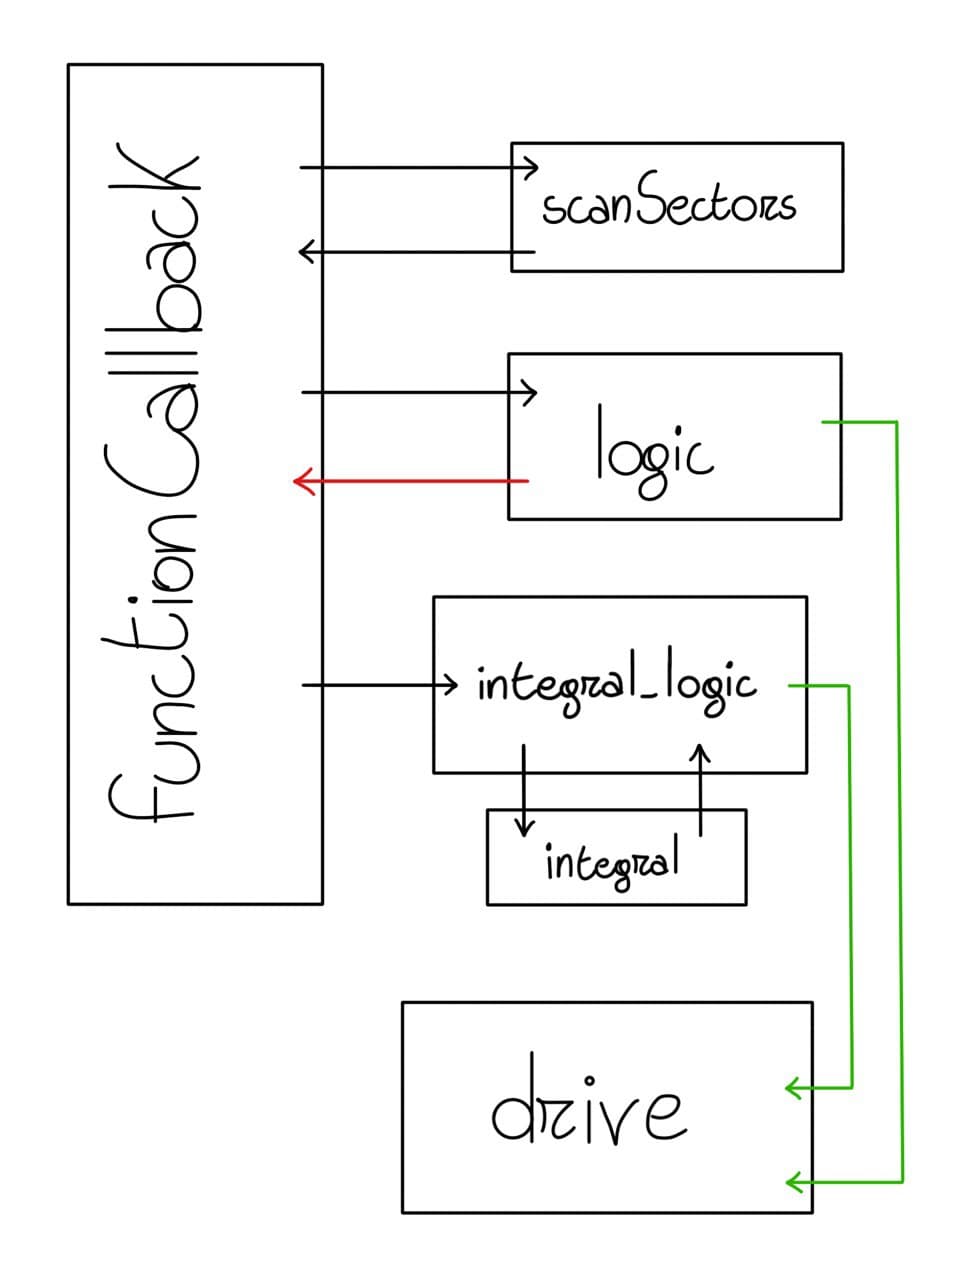 functionCallback
scanSectors
logic
integral_logic
integral
drive